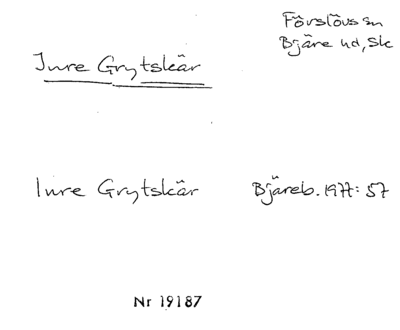 Förslövs sn
Bjäre hd, Sk
Inre Grytskär
Inre Grytskär Bjäreb. 1977: 57
Nr 19187